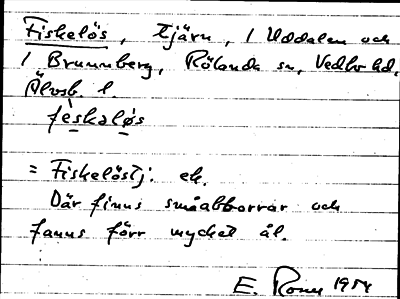 Fiskelös, tjärn, i Uddalen och
i Brunnberg, Rölanda sn, Vedbo hd,
Älvsb. l.
fèskaløs
= Fiskelöstj. ek.
Där finns småabborrar och
fanns förr mycket ål.
E. 1954